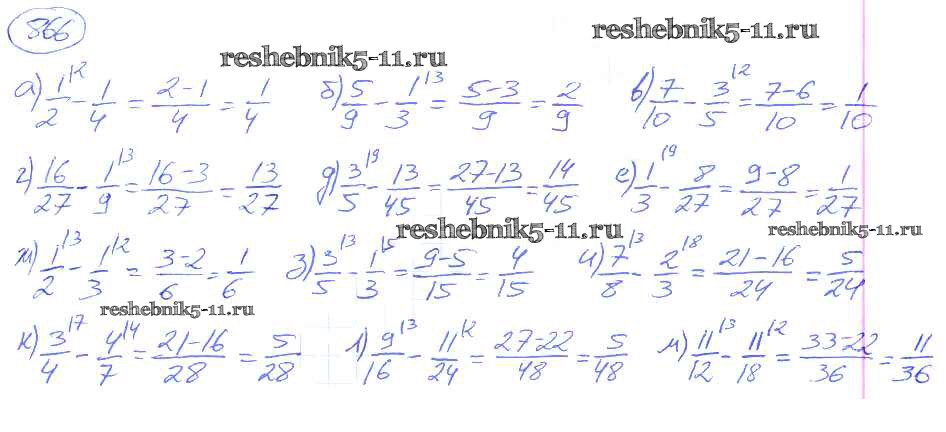 866
reshebnik5-11.ru
reshebnik5-11.ru
а) 1/2 |2 - 1/4 = (2-1)/4 = 1/4 б) 5/9 - 1/3 |3 = (5-3)/9 = 2/9 в) 7/10 - 3/5 |2 = (7-6)/10 = 1/10
г) 16/27 - 1/9 |3 = (16-3)/27 = 13/27 д) 3/5 |9 - 13/45 = (27-13)/45 = 14/45 е) 1/3 |9 - 8/27 = (9-8)/27 = 1/27
reshebnik5-11.ru
reshebnik5-11.ru
ж) 1/2 |3 - 1/3 |2 = (3-2)/6 = 1/6 з) 3/5 |3 - 1/3 |5 = (9-5)/15 = 4/15 и) 7/8 |3 - 2/3 |8 = (21-16)/24 = 5/24
reshebnik5-11.ru
к) 3/4 |7 - 4/7 |4 = (21-16)/28 = 5/28 л) 9/16 |3 - 11/24 |2 = (27-22)/48 = 5/48 м) 11/12 |3 - 11/18 |2 = (33-22)/36 = 11/36